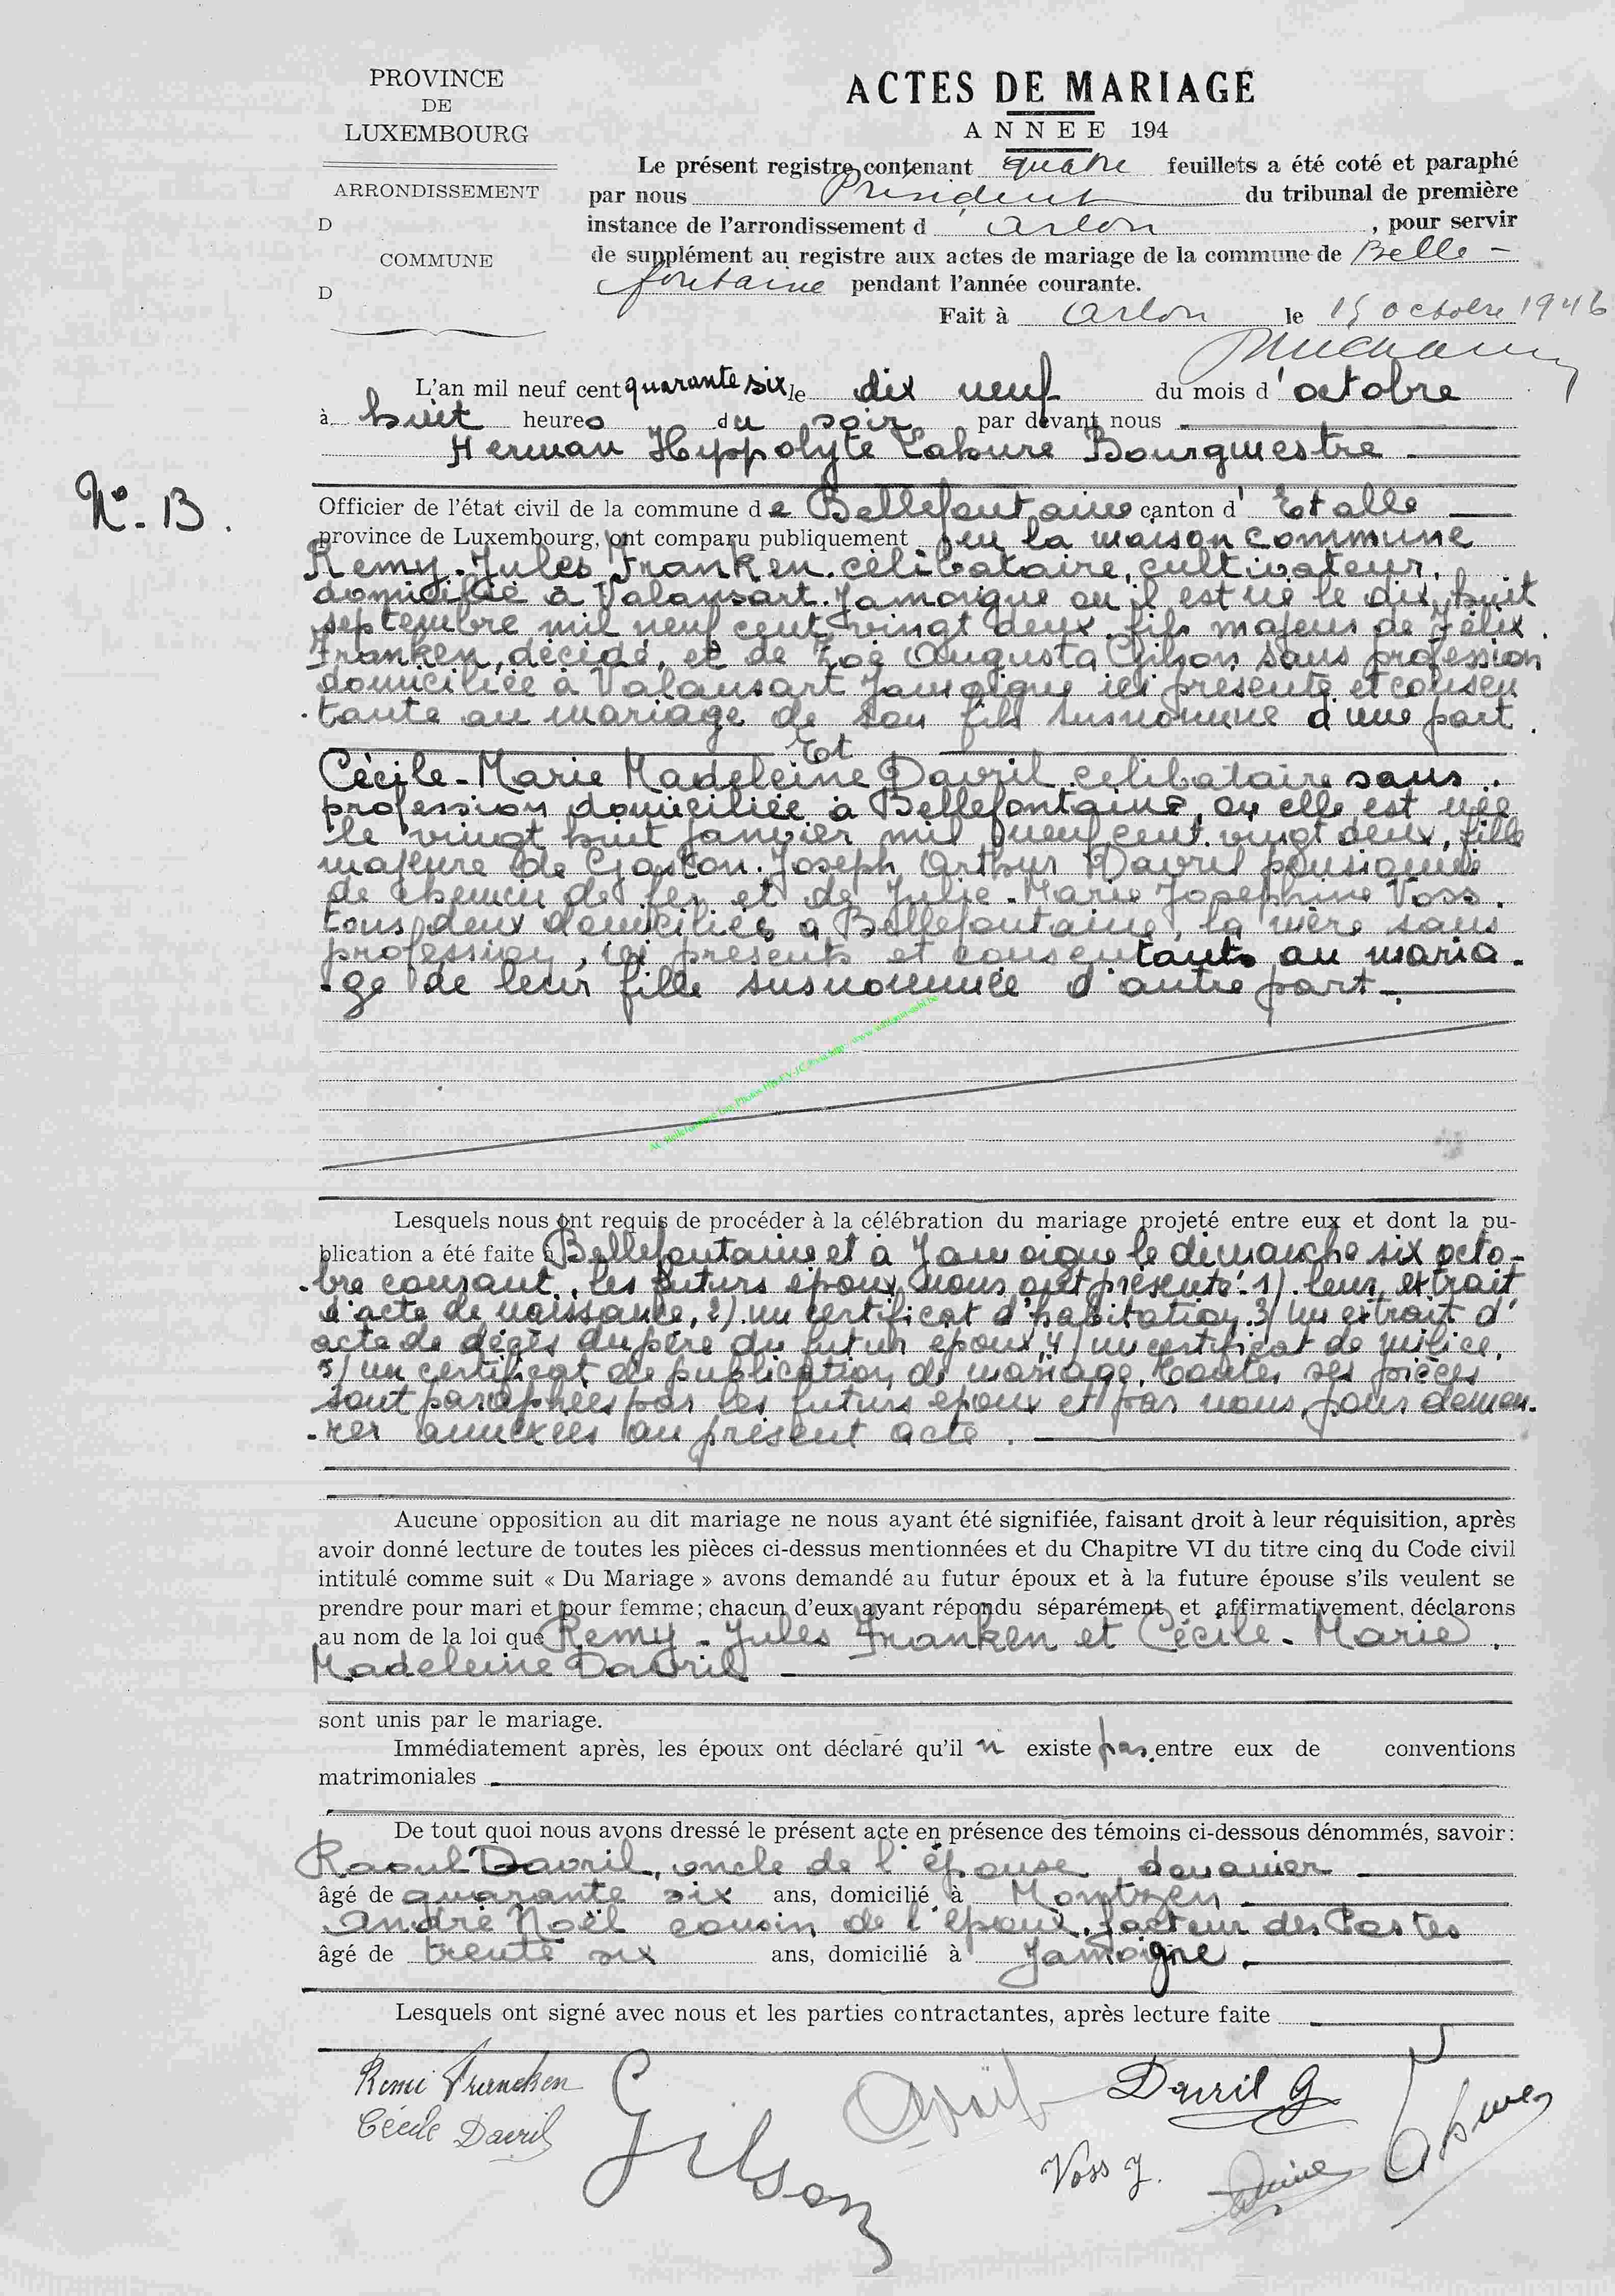 PROVINCE
DE
LUXEMBOURG
ARRONDISSEMENT
D
COMMUNE
D
ACTES DE MARIAGE
ANNEE 194
Le présent registre contenant quatre feuillets a été coté et paraphé
par nous Président du tribunal de première
instance de l'arrondissement d Arlon , pour servir
de supplément au registre aux actes de mariage de la commune de Belle-
fontaine pendant l'année courante.
Fait à Arlon le 15 octobre 1946
L'an mil neuf cent quarante six le dix neuf du mois d'octobre
à huit heures du soir par devant nous
Herman Hyppolyte Lahure Bourgmestre
N°. 13.
Officier de l'état civil de la commune de Bellefontaine canton d'Etalle
province de Luxembourg, ont comparu publiquement en la maison commune
Remy-Jules Franken. célibataire, cultivateur,
domicilié à Valansart. Jamoigne ou il est né le dix huit
septembre mil neuf cent vingt deux, fils majeur de Félix
Franken, décédé, et de Zoé Augusta Gilson sans profession
domiciliée à Valansart Jamoigne ici présente et consen
tante au mariage de son fils susnommé d'une part.
Et
Cécile-Marie Madeleine Davril célibataire sans
profession domiciliée à Bellefontaine, ou elle est née
le vingt huit janvier mil neuf cent vingt deux, fille
majeure de Gaston. Joseph Arthur Davril pensionné
de chemin de fer et de Julie-Marie Josephine Voss.
tous deux domiciliés a Bellefontaine, la mère sans
profession, ici présents et consentants au maria-
-ge de leur fille susnommée d'autre part.
Lesquels nous ont requis de procéder à la célébration du mariage projeté entre eux et dont la pu-
blication a été faite à Bellefontaine et à Jamoigne le dimanche six octo-
-bre courant, les futurs époux nous ont présenté: 1). leur extrait
d'acte de naissance, 2). un certificat d'habitation. 3) un extrait d'
acte de décès du père du futur époux, 4) un certificat de milice,
5) un certificat de publication de mariage. toutes ses pièces
sont paraphées par les futurs epoux et par nous, pour demeu-
-rer annexées au présent acte.
Aucune opposition au dit mariage ne nous ayant été signifiée, faisant droit à leur réquisition, après
avoir donné lecture de toutes les pièces ci-dessus mentionnées et du Chapitre VI du titre cinq du Code civil
intitulé comme suit « Du Mariage » avons demandé au futur époux et à la future épouse s'ils veulent se
prendre pour mari et pour femme; chacun d'eux ayant répondu séparément et affirmativement, déclarons
au nom de la loi que Remy-Jules Franken et Cécile-Marie
Madeleine Davril
sont unis par le mariage.
Immédiatement après, les époux ont déclaré qu'il n existe pas entre eux de conventions
matrimoniales
De tout quoi nous avons dressé le présent acte en présence des témoins ci-dessous dénommés, savoir:
Raoul Davril, oncle de l'épouse douanier
âgé de quarante six ans, domicilié à Montzen
André Noël cousin de l'époux, facteur des Postes
âgé de trente six ans, domicilié à Jamoigne.
Lesquels ont signé avec nous et les parties contractantes, après lecture faite
Remi Francken
Cécile Davril
Gilson
Davril G
Voss J.